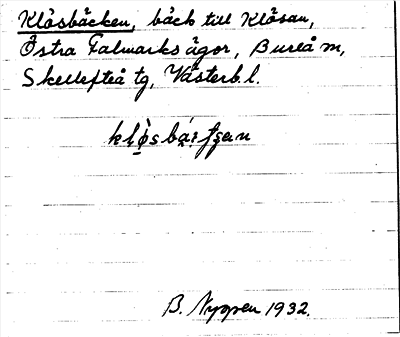 Klösbäcken, bäck till Klösan,
Östra Falmarks ägor, Bureå sn,
Skellefteå tg, Västerb. l.
B. Nygren 1932.